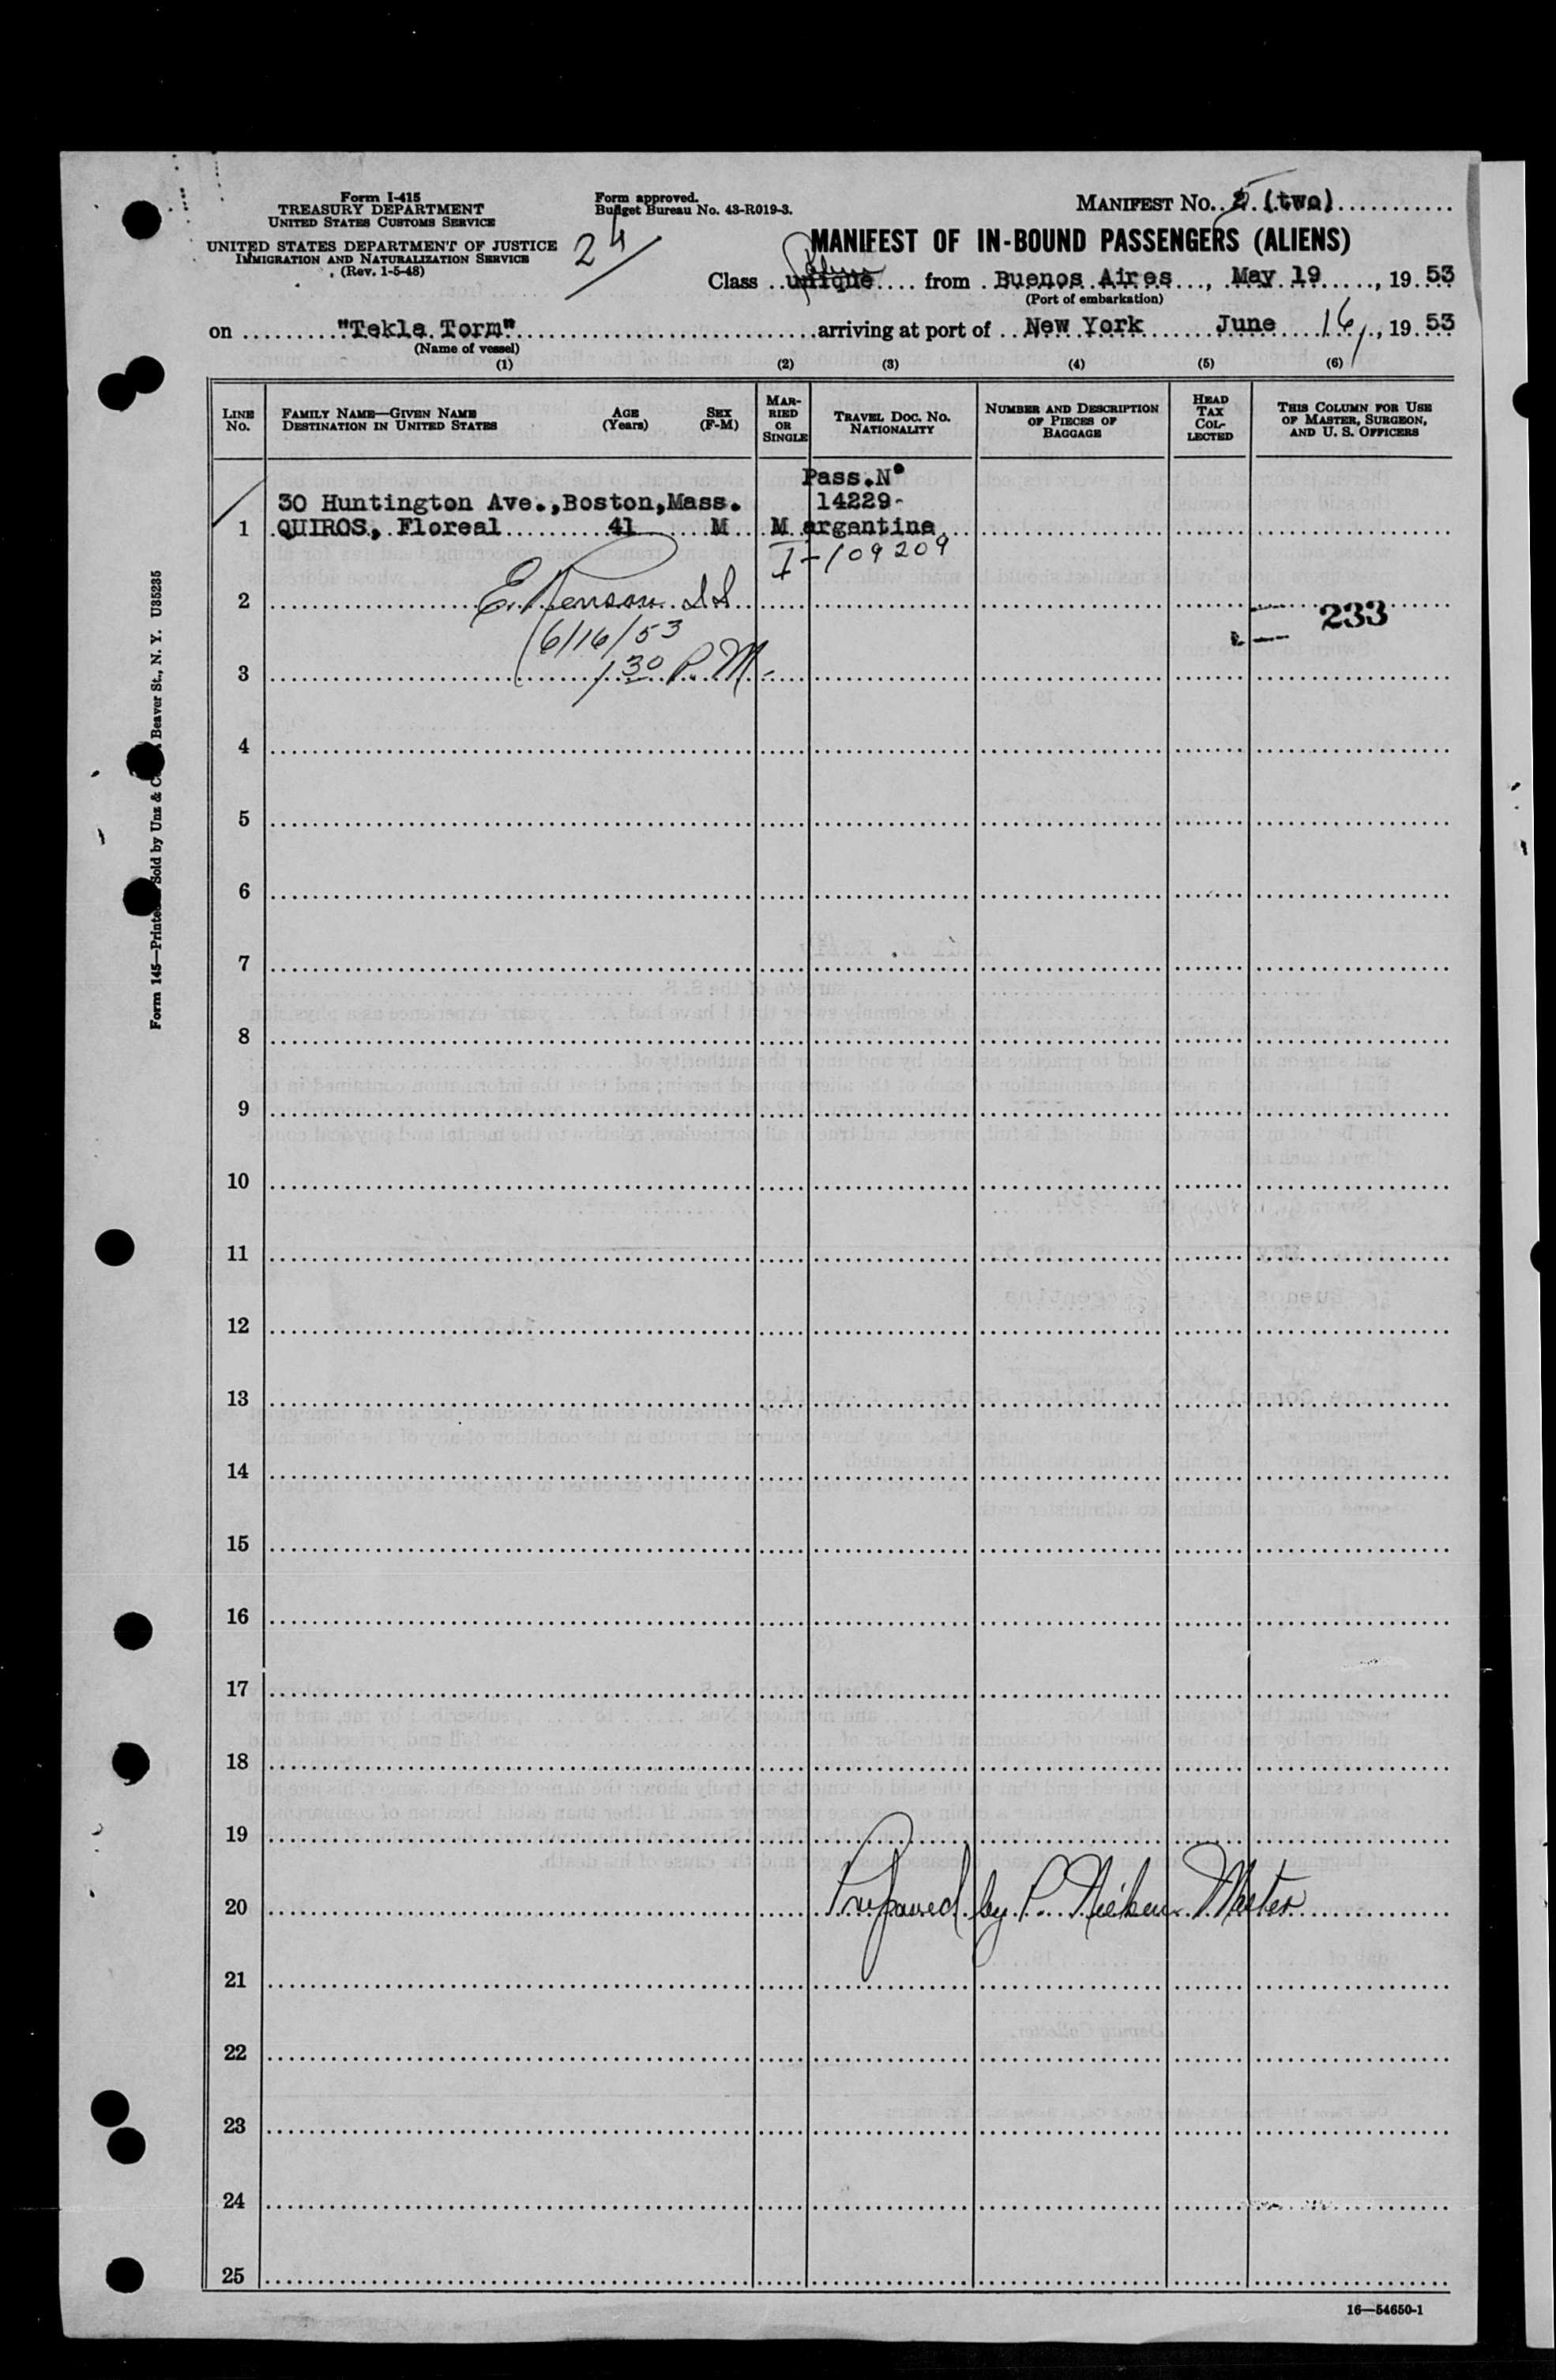 Form I-415
TREASURY DEPARTMENT
UNITED STATES CUSTOMS SERVICE
UNITED STATES DEPARTMENT OF JUSTICE
IMMIGRATION AND NATURALIZATION SERVICE
(Rev. 1-5-48)
Form approved.
Budget Bureau No. 43-R019-3.
MANIFEST NO. (two)
MANIFEST OF IN-BOUND PASSENGERS (ALIENS)
Class unique from Buenos Aires, May 19, 1953
(Port of embarkation)
on "Tekla Torm" arriving at port of New York June 16, 1953
(Name of vessel)
(1) (2) (3) (4) (5) (6)
LINE NO.
FAMILY NAME—GIVEN NAME
DESTINATION IN UNITED STATES
AGE (Years)
SEX (F-M)
MARRIED OR SINGLE
TRAVEL DOC. NO. NATIONALITY
NUMBER AND DESCRIPTION OF PIECES OF BAGGAGE
HEAD TAX COLLECTED
THIS COLUMN FOR USE OF MASTER, SURGEON, AND U. S. OFFICERS
Pass.Nº
30 Huntington Ave.,Boston,Mass. 14229-
1 QUIROS, Floreal 41 M M argentina
I-109209
2 233
6/16/53
3 1 30 P.M.
4
5
6
7
8
9
10
11
12
13
14
15
16
17
18
19
20 Prepared by P. Master
21
22
23
24
25
16—54650-1
Form 145—Printed Sold by Unz & Beaver St., N. Y. U35235